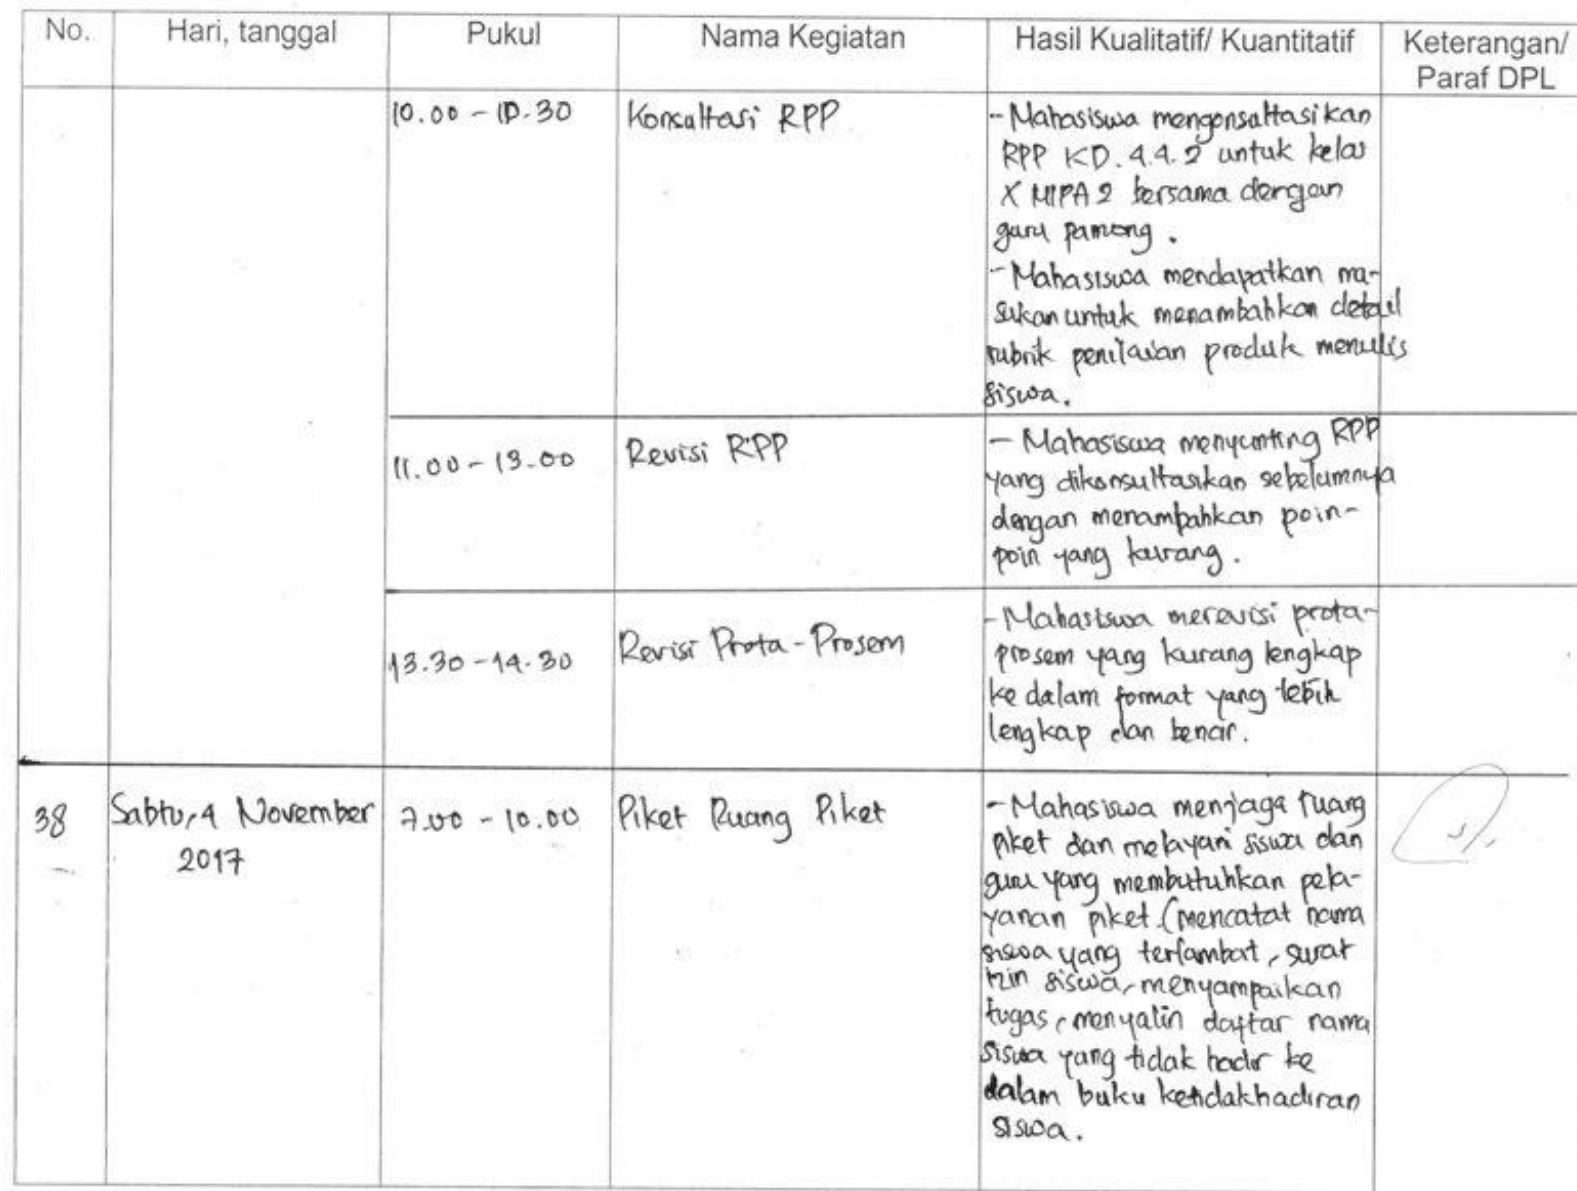 No.
Hari, tanggal
Pukul
Nama Kegiatan
Hasil Kualitatif/ Kuantitatif
Keterangan/
Paraf DPL
10.00 - 10.30
Konsultasi RPP
- Mahasiswa mengonsultasikan
RPP KD. 4.4.2 untuk kelas
X MIPA 2 bersama dengan
guru pamong.
- Mahasiswa mendapatkan ma-
sukan untuk menambahkan detail
rubrik penilaian produk menulis
siswa.
11.00 - 13.00
Revisi RPP
- Mahasiswa menyunting RPP
yang dikonsultasikan sebelumnya
dengan menambahkan poin-
poin yang kurang.
13.30 - 14.30
Revisi Prota - Prosem
- Mahasiswa merevisi prota-
prosem yang kurang lengkap
ke dalam format yang lebih
lengkap dan benar.
38
Sabtu, 4 November
2017
7.00 - 10.00
Piket Ruang Piket
- Mahasiswa menjaga ruang
piket dan melayani siswa dan
guru yang membutuhkan pela-
yanan piket (mencatat nama
siswa yang terlambat, surat
izin siswa, menyampaikan
tugas, menyalin daftar nama
siswa yang tidak hadir ke
dalam buku ketidakhadiran
siswa.